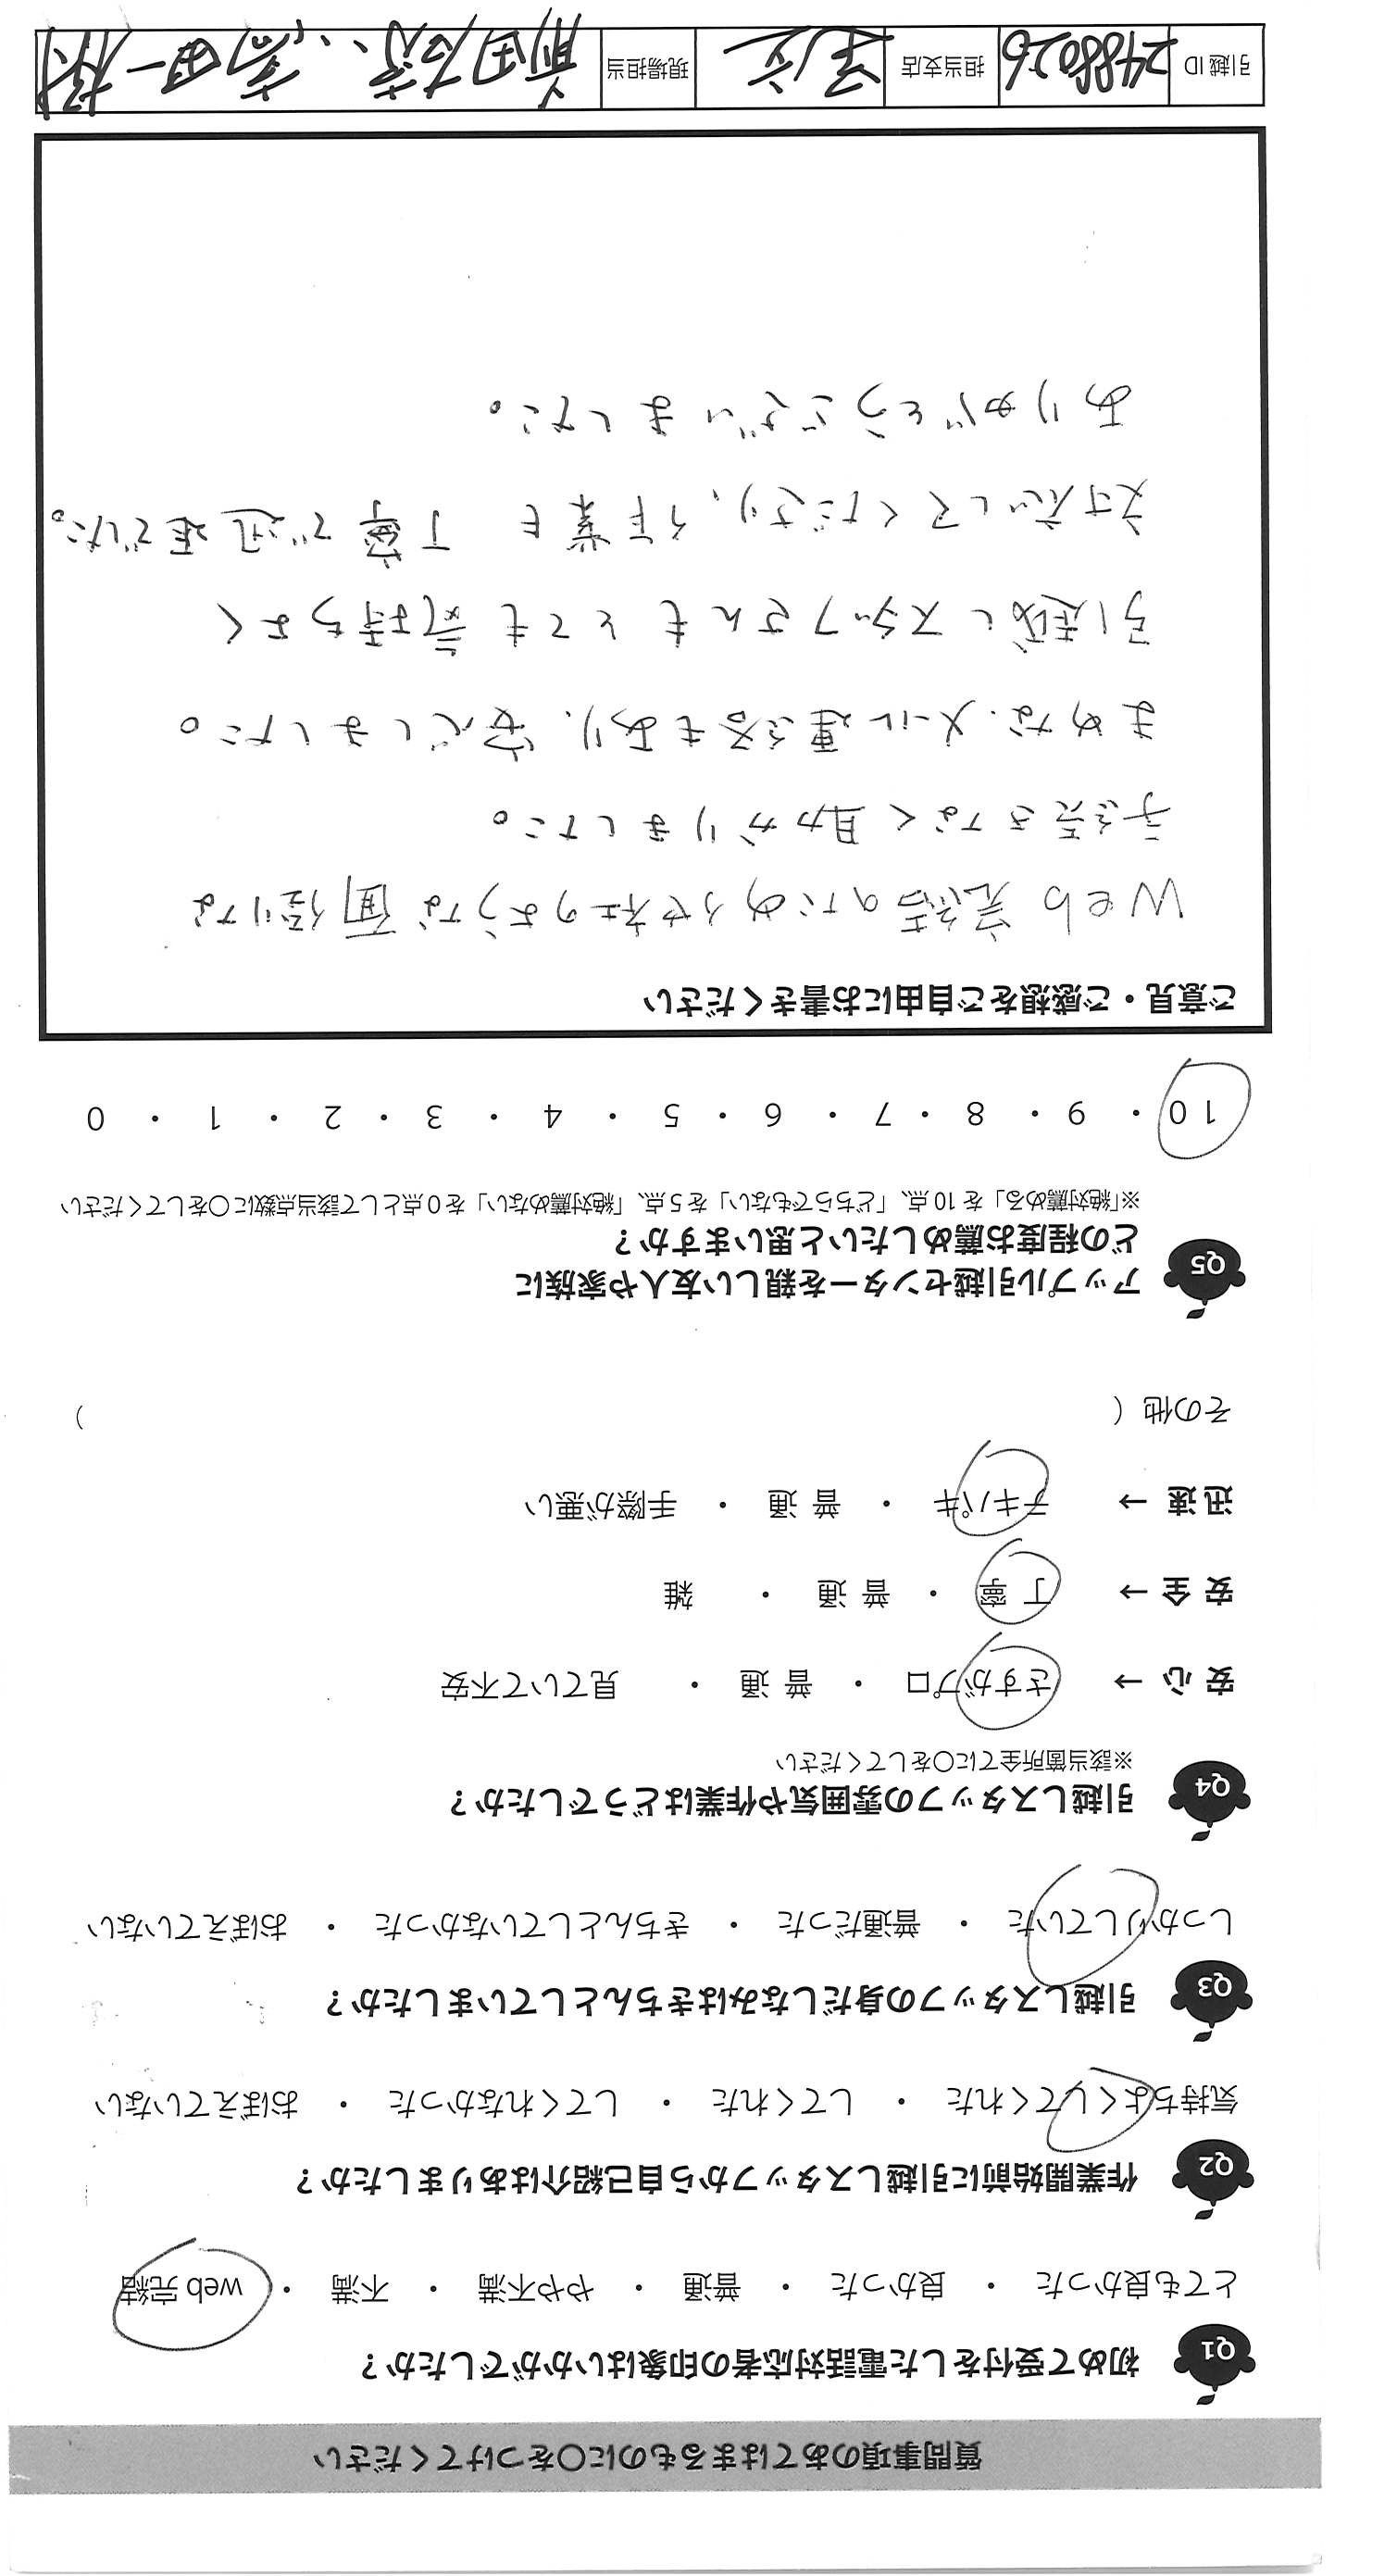 質問事項のあてはまるものに〇をつけてください
Q1 初めて受付をした電話対応者の印象はいかがでしたか？
とても良かった ・ 良かった ・ 普通 ・ やや不満 ・ 不満 ・ web 完結
Q2 作業開始前に引越しスタッフから自己紹介はありましたか？
気持ちよくしてくれた ・ してくれた ・ してくれなかった ・ おぼえていない
Q3 引越しスタッフの身だしなみはきちんとしていましたか？
しっかりしていた ・ 普通だった ・ きちんとしていなかった ・ おぼえていない
Q4 引越しスタッフの雰囲気や作業はどうでしたか？
※該当箇所全てに〇をしてください
安 心 → さすがプロ ・ 普 通 ・ 見ていて不安
安 全 → 丁 寧 ・ 普 通 ・ 雑
迅 速 → テキパキ ・ 普 通 ・ 手際が悪い
その他 （ ）
Q5 アップル引越センターを親しい友人や家族に
どの程度お薦めしたいと思いますか？
※「絶対薦める」を 10 点、「どちらでもない」を 5 点、「絶対薦めない」を 0 点として該当点数に〇をしてください
10 ・ 9 ・ 8 ・ 7 ・ 6 ・ 5 ・ 4 ・ 3 ・ 2 ・ 1 ・ 0
ご意見・ご感想をご自由にお書きください
Web 完結のため他社のような面倒な
手続きなく助かりました。
まめな、メール連絡もあり、安心しました。
引越しスタッフさんもとても気持ちよく
対応してくださり、作業も 丁寧で迅速でした。
ありがとうございました。
引越 ID 2488026 担当支店 現場担当 前田 高田 村